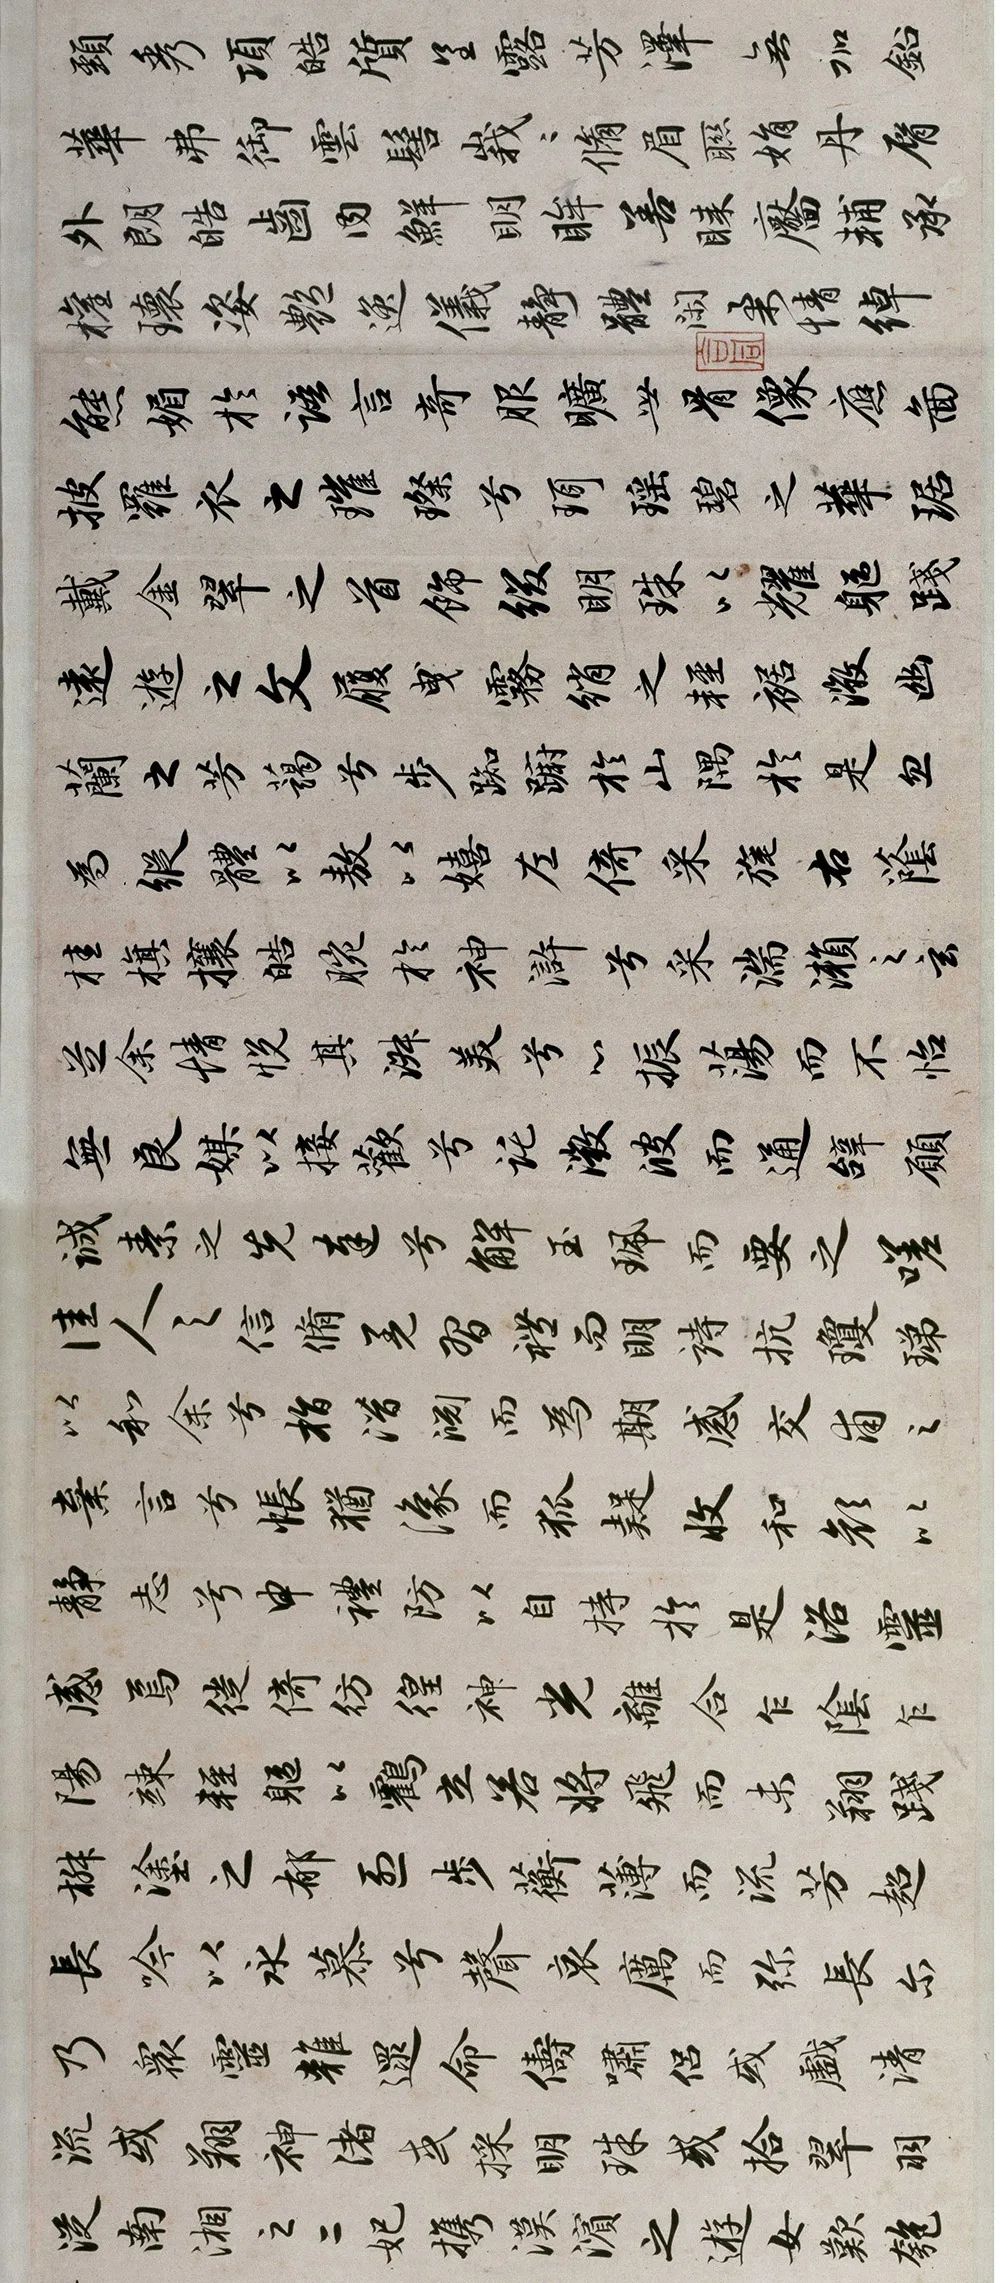 頸秀項皓質呈露芳澤無加鉛
華弗御雲髻峩〻脩眉聯娟丹脣
外朗皓齒內鮮明眸善睞靨輔承
權瓌姿艷逸儀靜體閑柔情綽
態媚於語言奇服曠世骨像應圖
披羅衣之璀璨兮珥瑶碧之華琚
戴金翠之首飾綴明珠以耀軀踐
遠遊之文履曳霧綃之輕裾微幽
蘭之芳藹兮步踟躕於山隅於是忽
焉縱體以敖以嬉左倚采旄右蔭
桂旗攘皓腕於神滸兮采湍瀨之玄
芝余情悅其淑美兮心振蕩而不怡
無良媒以接歡兮託微波而通辭願
誠素之先達兮解玉珮而要之嗟
佳人之信脩羌習禮而明詩抗瓊珶
以和余兮指潛淵而為期感交甫之
棄言兮悵猶豫而狐疑收和顏以
靜志兮申禮防以自持於是洛靈
感焉徙倚彷徨神光離合乍陰乍
陽竦輕軀以鶴立若將飛而未翔踐
椒塗之郁烈步蘅薄而流芳超
長吟以永慕兮聲哀厲而弥長尔
乃眾靈雜遝命儔嘯侶或戲清
流或翔神渚或採明珠或拾翠羽
從南湘之二妃攜漢濱之遊女歎匏